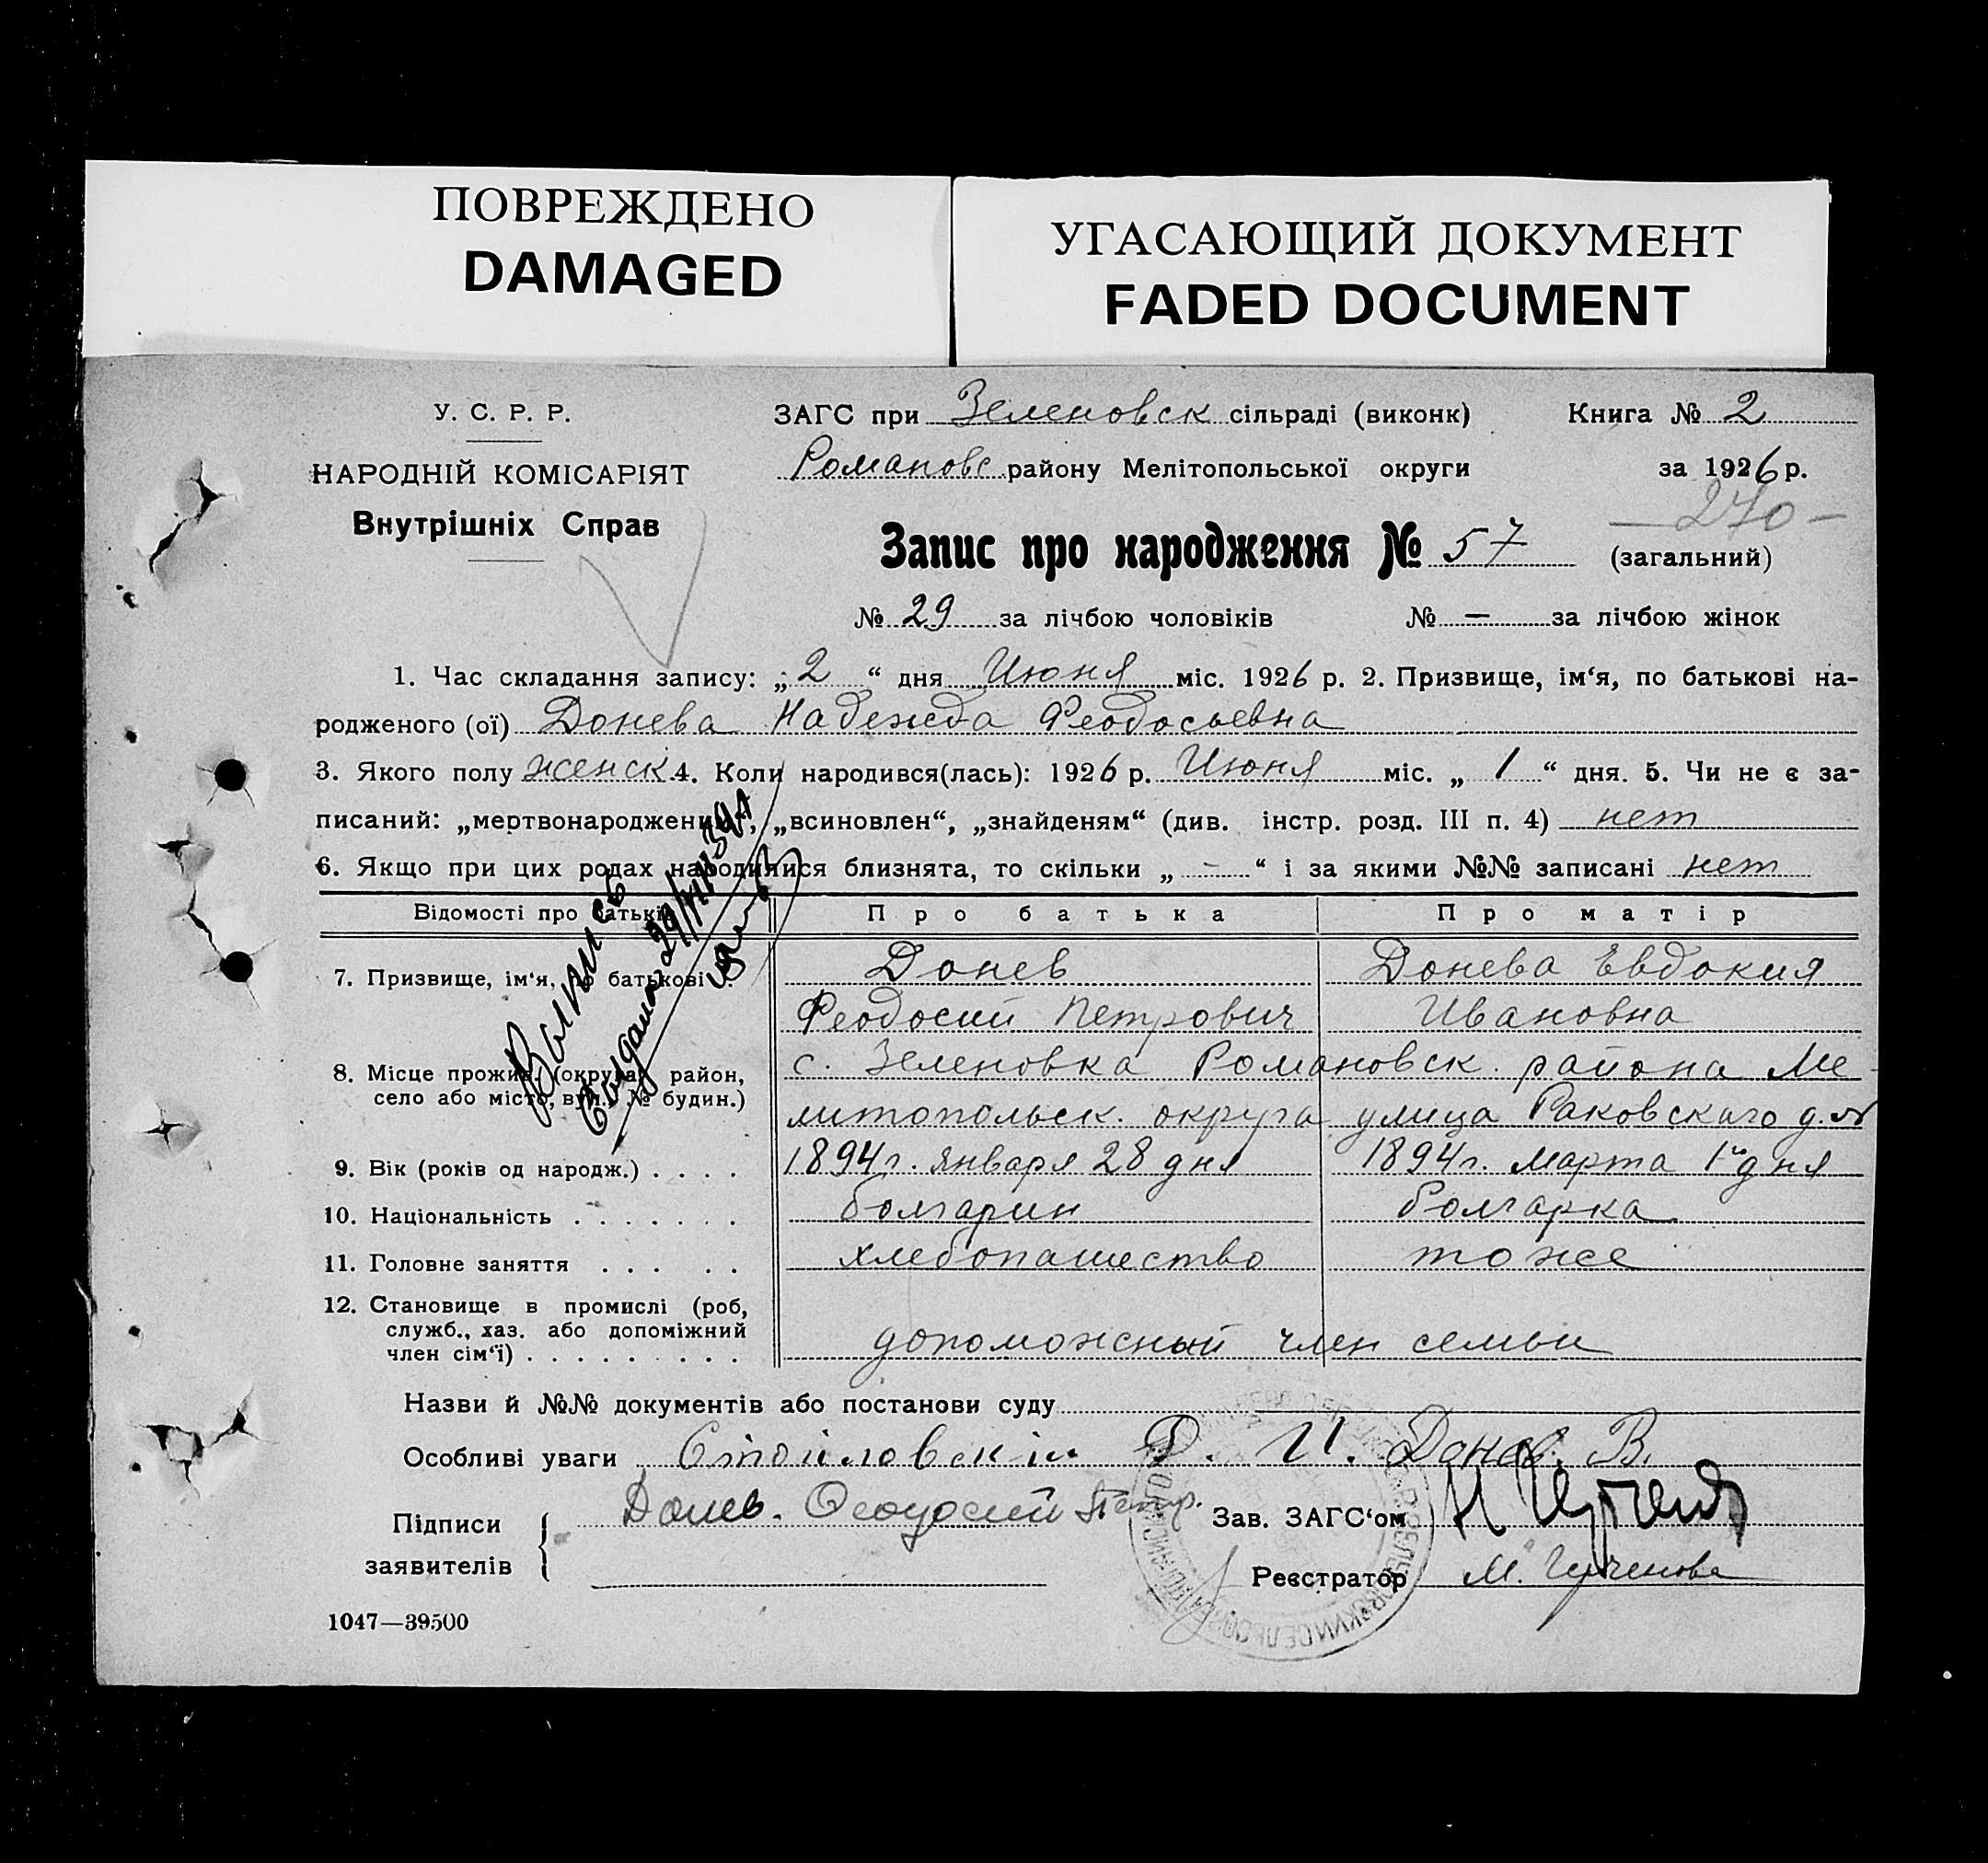 ПОВРЕЖДЕНО
DAMAGED
УГАСАЮЩИЙ ДОКУМЕНТ
FADED DOCUMENT
У. С. Р. Р.
НАРОДНІЙ КОМІСАРІЯТ
Внутрішніх Справ
ЗАГС при Зеленовск сільраді (виконк) Книга № 2
Романовс району Мелітопольської округи за 1926 р.
270 -
Запис про народження № 57 (загальний)
№ 29 за лічбою чоловіків № — за лічбою жінок
1. Час складання запису: „ 2 “ дня Июня міс. 1926 р. 2. Призвище, ім‘я, по батькові на-
родженого (ої) Донева Надежда Феодосьевна
3. Якого полу женск. 4. Коли народився(лась): 1926 р. Июня міс. „ 1 “ дня. 5. Чи не є за-
писаний: „мертвонароджений“, „всиновлен“, „знайденям“ (див. інстр. розд. III п. 4) нет
6. Якщо при цих родах народилися близнята, то скільки „ - “ і за якими №№ записані нет
Відомості про батьків Про батька Про матір
7. Призвище, ім‘я, по батькові . Донев Донева Евдокия
Феодосий Петрович Ивановна
8. Місце прожив. (округа, район, с. Зеленовка Романовск. района Ме-
село або місто, вул., № будин.) литопольск. округа улица Раковскаго д. №
9. Вік (років од народж.) . . . . 1894 г. января 28 дня 1894 г. марта 1го дня
10. Національність . . . . . . . болгарин болгарка
11. Головне заняття . . . . . хлебопашество тоже
12. Становище в промислі (роб,
служб., хаз. або допоміжний
член сім‘ї) . . . . . . . . . допоможный член семьи
Выпись
Назви й №№ документів або постанови суду
Особливі уваги Стойловскім Д. И. Донев. В.
Підписи
заявителів
Донев. Феодосий Петр.
Зав. ЗАГС‘ом
Реєстратор М.
1047—39500